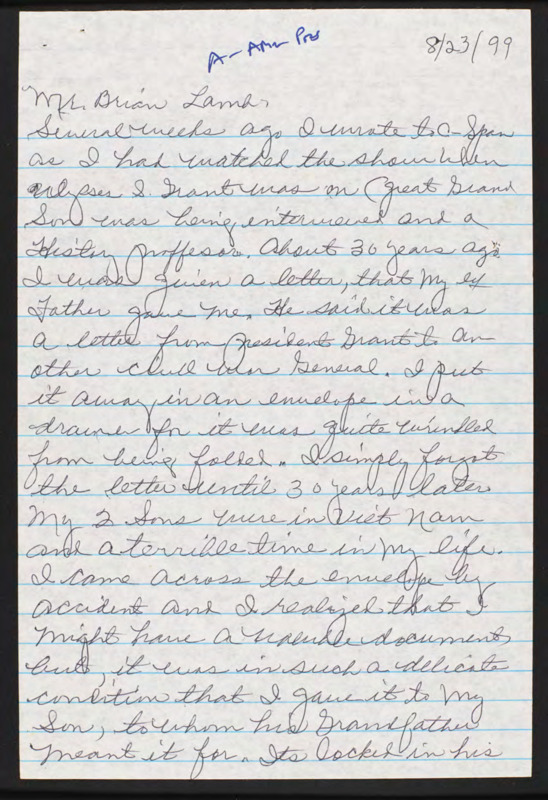 A-Am Pres
8/23/99
Mr. Brian Lamb,
Several weeks ago I wrote to C-Span
as I had watched the show when
Ulysses S. Grant was on (great Grand
Son was being interviewed and a
History proffesor. About 30 years ago
I was given a letter, that my ex
Father gave me. He said it was
a letter from president Grant to an-
other civil war General. I put
it away in an envelope in a
drawer for it was quite wrinkled
from being folded. I simply forgot
the letter until 30 years later
My 2 Sons were in Viet Nam
and a terrible time in my life.
I came across the envelope by
accident and I realized that I
might have a document
but, it was in such a delicate
condition that I gave it to my
Son, to whom his Grandfather
meant it for. Its locked in his